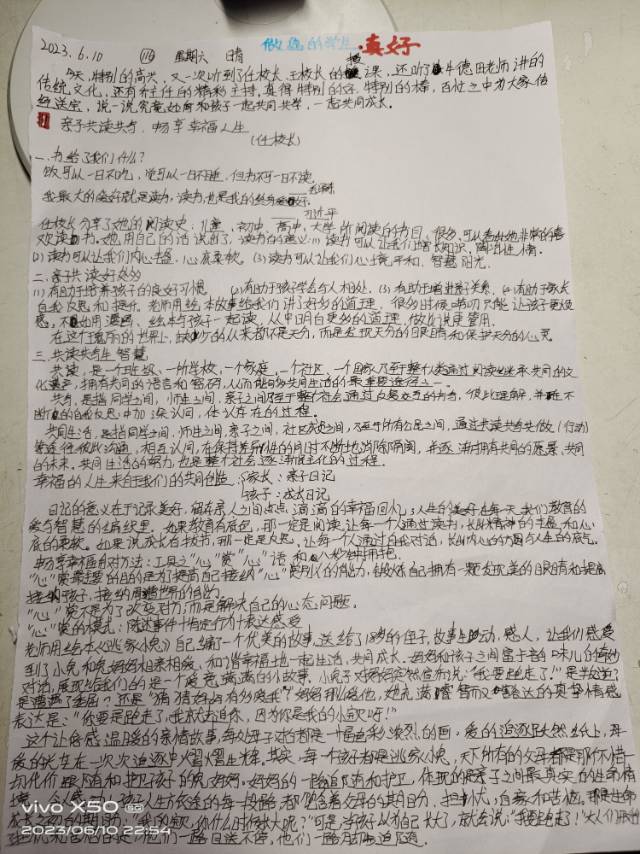 2023.6.10 (116) 星期六 日晴 做您的学生·真好
今天,特别的高兴,又一次听到了任校长、王校长的课,还听了牛德田老师讲的
传统文化,还有乔主任的精彩主持,真得特别的好,特别的棒,百忙之中为大家传
经送宝,说一说究竟如何和孩子一起共同共学,一起共同成长。
亲子共读共写,畅享幸福人生
(任校长)
一、书给了我们什么?
饭可以一日不吃,觉可以一日不睡,但书不可一日不读
毛泽东
我最大的爱好就是读书,读书也是我的生活
习近平
任校长分享了她的阅读史,儿童、初中、高中、大学所阅读的书目,很多,可以看出她非常的喜
欢读书。她用自己的话说出了,读书的意义:(1)读书可以让我们增长知识,陶冶性情。
(2)读书可以让我们内心丰盈,心底柔软。(3)读书可以让我们心境平和、智慧阳光。
二、亲子共读好处多
(1)有助于培养孩子的良好习惯 (2)有助于孩子学会与人相处。(3)有助于增进亲子关系,(4)有助于家长
自我反思和提升。老师用绘本故事给我们讲了好多的道理,很多时候,唠叨只能让孩子更疑
惑。不如用漫画、绘本与孩子一起读,从中明白更多的道理,做比说更管用。
在这个喧嚣的世界上,缺少的从来都不是天分,而是发现天分的眼睛和保护天分的心灵。
三、共读共写生智慧
共读,是一个班级、一所学校,一个家庭,一个社区,一个国家乃至整个人类通过阅读继承共同的文
化遗产,拥有共同的语言和密码,从而能够为共同生活的最重要途径之一。
共写,是指同学之间,师生之间,亲子之间乃至于整个社会通过反复交互的书写,彼此理解,并在不
断的自我反思中加深认同、体认存在的过程。
共同生活,是指同学之间,师生之间,亲子之间,社区成员之间,乃至于所有公民之间,通过共读共写共做(行动)
彼此沟通,相互认同,在保持差异性的同时不断地消除隔阂,并逐渐拥有共同的愿景,共同
的未来。共同生活的努力,也是整个社会逐渐进化的过程。
幸福的人生来自于我们的共同创造:家长:亲子日记
孩子:成长日记
日记的意义在于记录美好,留存亲人之间点点滴滴的幸福回忆,人生的美好在每一天,我们教育的
爱与智慧的生活故里。如果教育有底色,那一定是阅读,让每一个人通过读书,长出精神的丰盈和心
底的柔软。如果说成长有拔节,那一定是反思,让每一个人通过自我对话,长出内心的力量与人生的底气。
畅享幸福的方法:工具之"心"赏"心"语和八秒钟拥抱。
"心"赏最重要的目的是为了提高自己接纳"心"赏别人的能力,锻炼自己拥有一颗发现美的眼睛和提高
接纳孩子,接纳周围世界的能力。
"心"赏不是为了改变对方,而是解决自己的心态问题。
"心"赏的模式:陈述事件+肯定行为+表达感受
老师用绘本《逃家小兔》自己编了一个优美的故事,送给了18岁的侄子,故事生动,感人,让我们感受
到了小兔和兔妈妈相亲相爱,和谐幸福地一起生活,共同成长。妈妈和孩子之间富于奇妙
对话,展现给我们的是一个爱意满满的小故事。小兔子对妈妈突然宣布说:"我要跑走了!"是学说了
还是"猜猜妈妈有多爱我?"妈妈那么爱他,她充满智慧又表达的真挚情感
表达是:"你要是跑走了,我就去追你,因为你是我的小宝贝呀!"
这个让你感温暖的亲情故事,每处母子对白都是一幅色彩浓烈的画。爱的追逐跃然纸上,母
爱的光芒在一次次追逐中熠熠生辉。其实,每一个孩子都是逃家小兔,天下所有的父母都是那个不惜
一切代价跟随和护卫孩子的兔妈妈。妈妈的一路追随和护卫,体现的是亲子之间最真实的生命情
父母的期待、担忧,自豪和苦恼。
成长之初的期盼:"我的宝贝,你什么时候长大呢?"可是,当孩子以为自己长大了,就会说:"我要跑走了!"
他们一路
vivo X50
2023/06/10 22:54